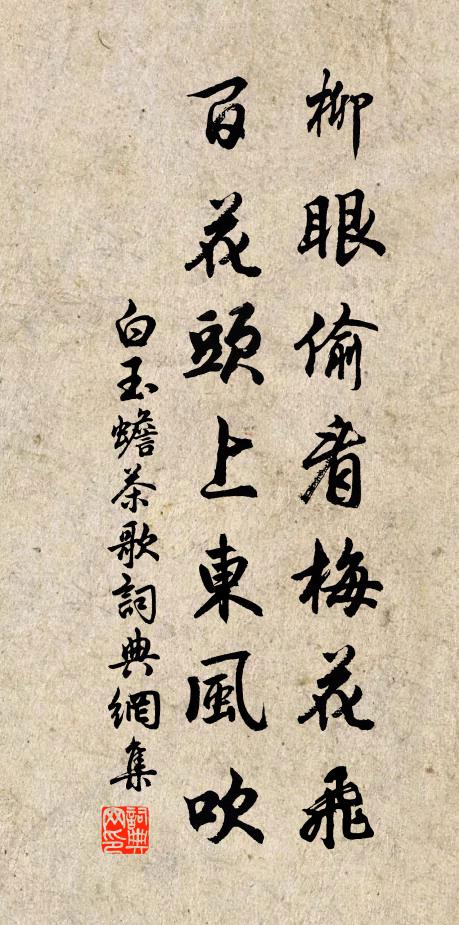 柳眼偷看梅花飛
百花頭上東風吹
白玉蟾茶歌詞典網集
詞典網印